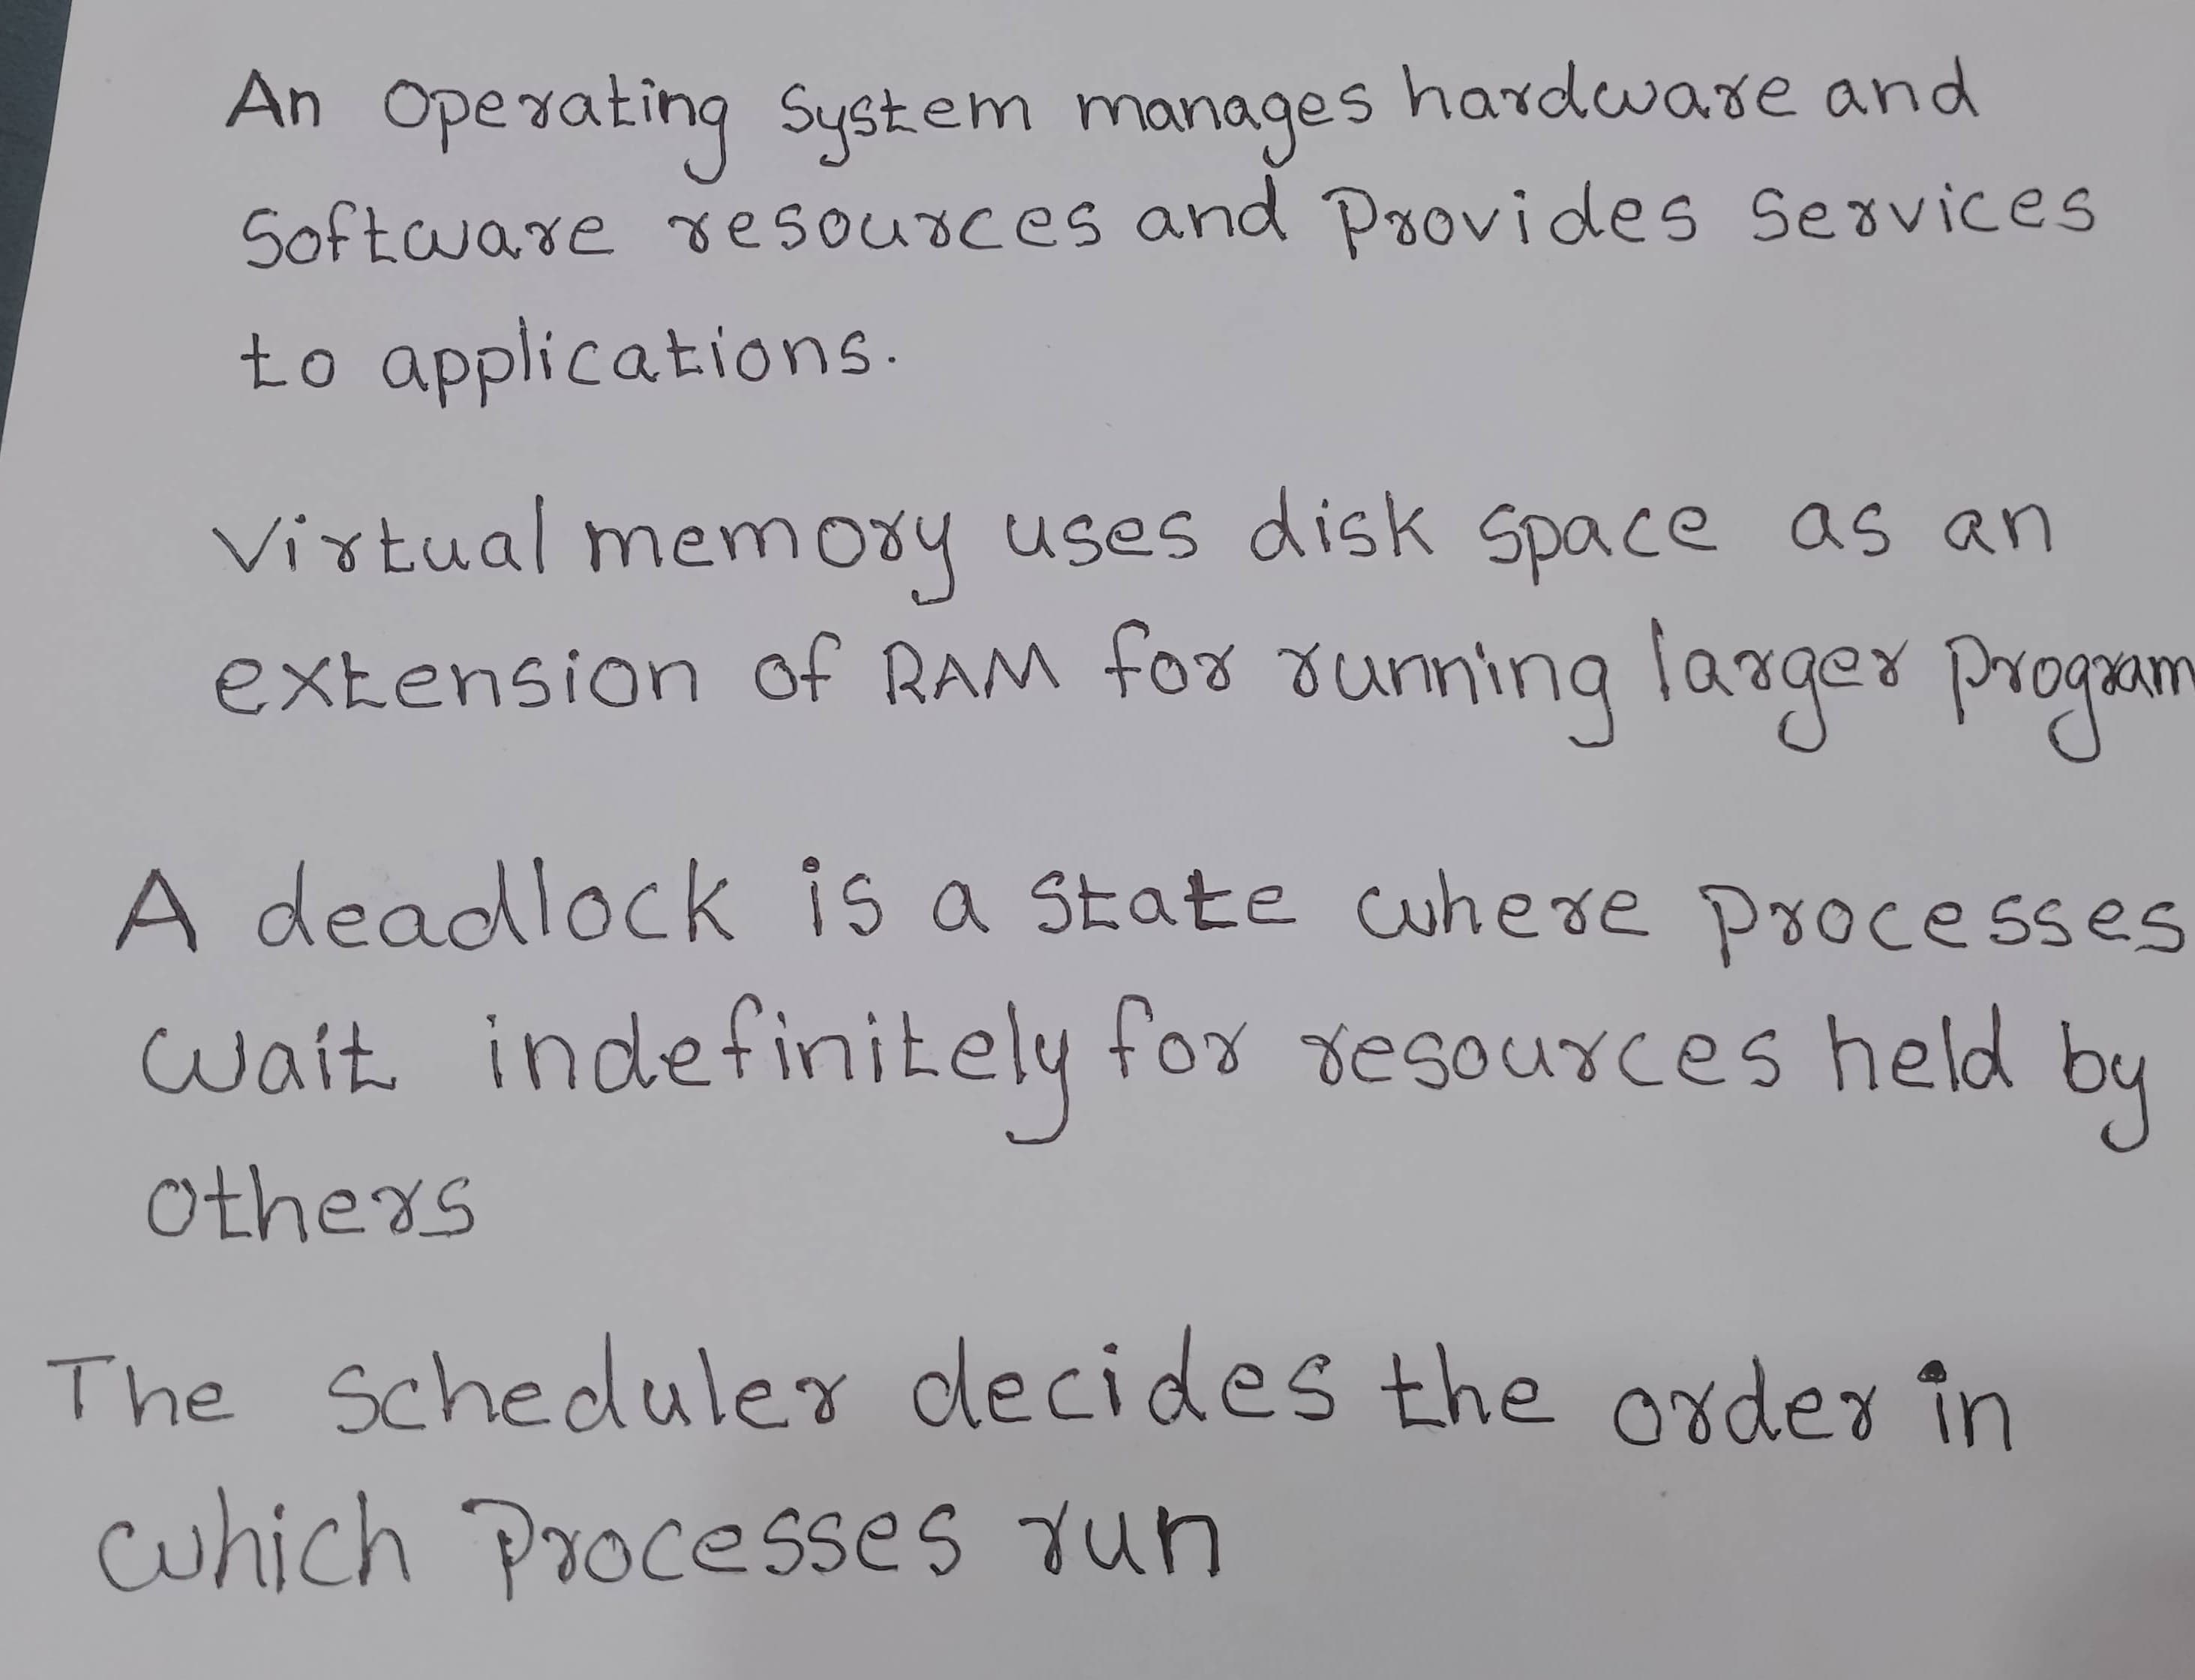 An operating system manages hardware and
Software resources and Provides Services
to applications.
Virtual memory uses disk space as an
extension of RAM for running larger program
A deadlock is a state where processes
wait indefinitely for resources held by
others
The scheduler decides the order in
which Processes run